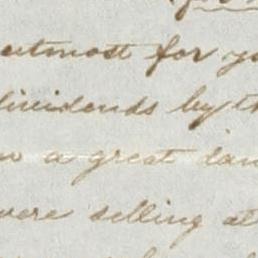 utmost for yo
dividends by th
a great dam
were selling at